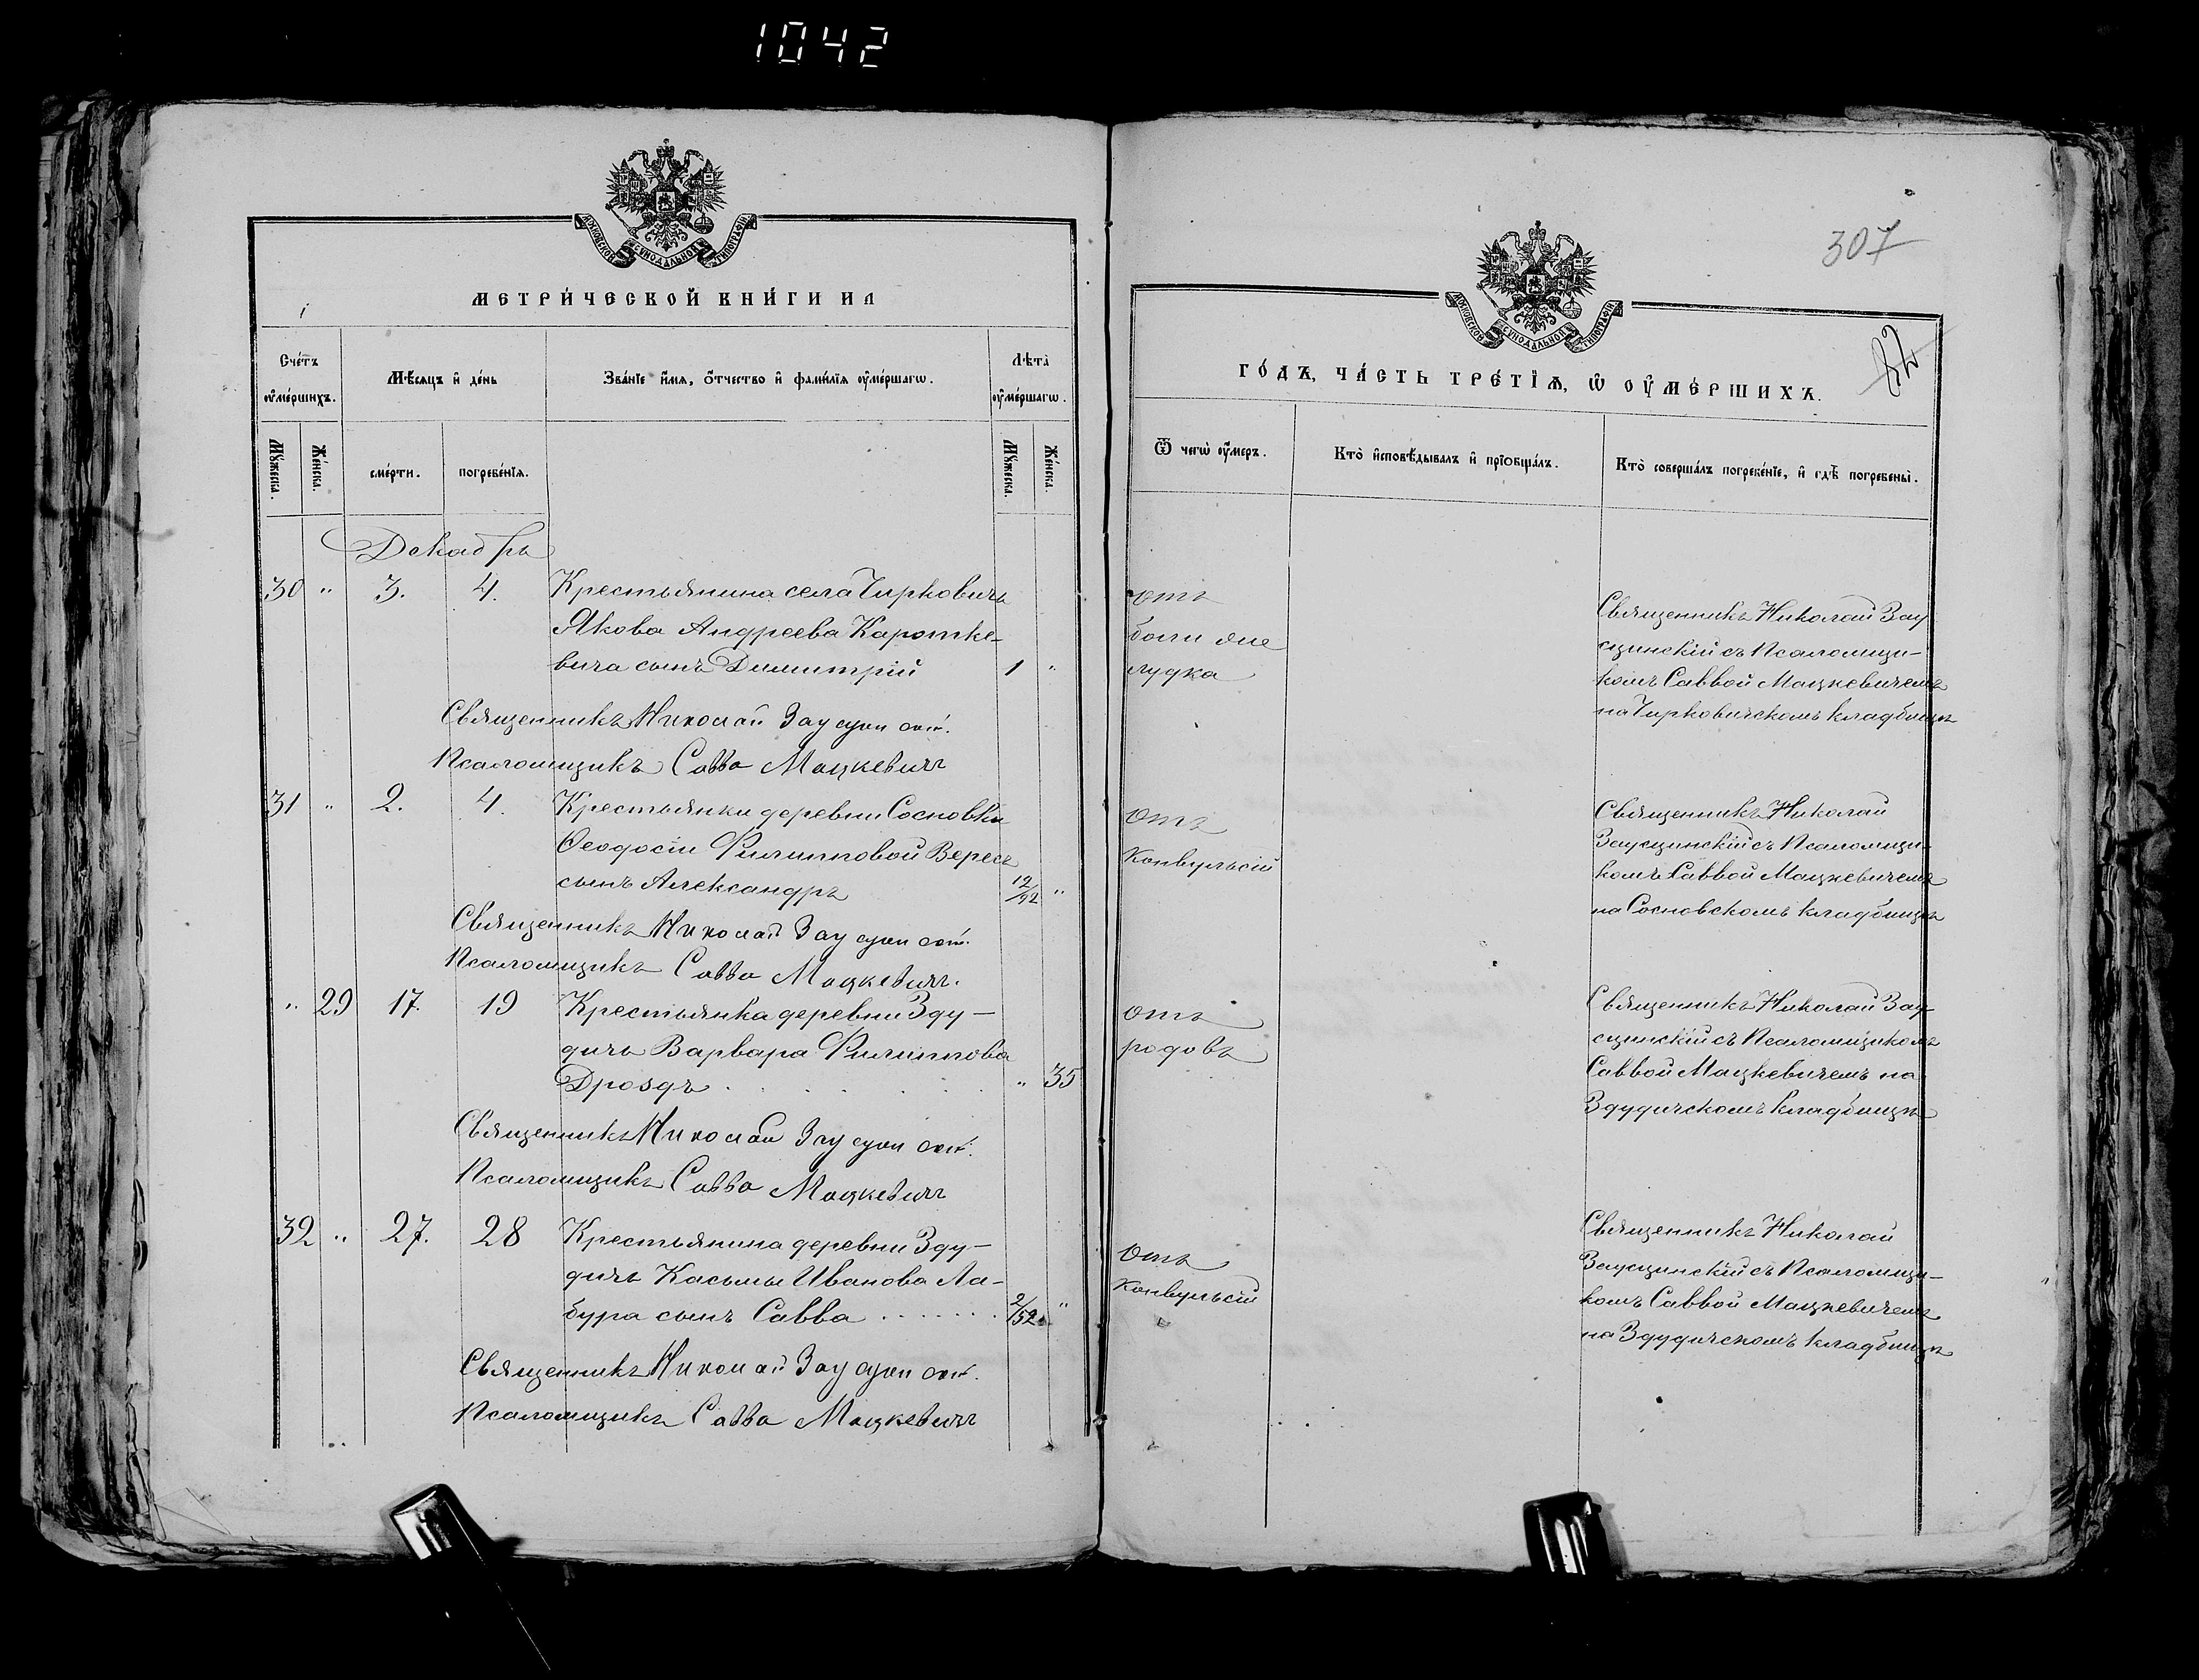 1042
МОСКОВСКОЙ СѴНОДАЛЬНОЙ ТИПОГРАФІИ
МЕТРИ́ЧЕСКОЙ КНИ́ГИ НА
Сче́тъ ᲂу҆ме́ршихъ.
Мѣ́сяцъ и҆ де́нь
Зва́нїе и҆́мѧ, ѻ҆́тчество и҆ фами́лїѧ ᲂу҆ме́ршагѡ.
Лѣта̀ ᲂу҆ме́ршагѡ.
Мꙋ́жеска.
Же́нска.
сме́рти.
погребе́нїѧ.
Мꙋ́жеска.
Же́нска.
Декабрь
30 " 3. 4. Крестьянина села Чирковичъ
Якова Андреева Каротке-
вича сынъ Димитрій 1 "
Священникъ Николай Заусцинскій.
Псаломщикъ Савва Мацкевичъ
31 " 2. 4. Крестьянки деревни Сосновки
Ѳеодосіи Филипповой Вересъ
сынъ Александръ "
Священникъ Николай Заусцинскій.
Псаломщикъ Савва Мацкевичъ.
" 29 17. 19 Крестьянка деревни Зду-
дичъ Варвара Филиппова
Дроздъ . . . . . " 35
Священникъ Николай Заусцинскій.
Псаломщикъ Савва Мацкевичъ
32 " 27. 28 Крестьянина деревни Зду-
дичъ Касьмы Иванова Ла-
бура сынъ Савва . . . . . . . 2/52 "
Священникъ Николай Заусцинскій.
Псаломщикъ Савва Мацкевичъ
307
МОСКОВСКОЙ СѴНОДАЛЬНОЙ ТИПОГРАФІИ
ГО́ДЪ, ЧА́СТЬ ТРЕ́ТЇѦ, Ѡ҆ ОУ҆МЕ́РШИХЪ.
Ѿ чегѡ̀ ᲂу҆́меръ.
Кто̀ и҆сповѣ́дывалъ и҆ прїобща́лъ.
Кто̀ соверша́лъ погребе́нїе, и҆ гдѣ̀ погребены̀.
отъ
боли же
лудка
Священникъ Николай Зау
сцинскій съ Псаломщи-
комъ Саввой Мацкевичемъ
на Чирковичскомъ кладбищѣ
отъ
конвульсій
Священникъ Николай
Заусцинскій съ Псаломщи-
комъ Саввой Мацкевичемъ
на Сосновскомъ кладбищѣ
отъ
родовъ
Священникъ Николай Зау-
сцинскій съ Псаломщикомъ
Саввой Мацкевичемъ на
Здудичскомъ кладбищѣ
отъ
конвульсій
Священникъ Николай
Заусцинскій съ Псаломщи-
комъ Саввой Мацкевичемъ
на Здудичскомъ кладбищѣ